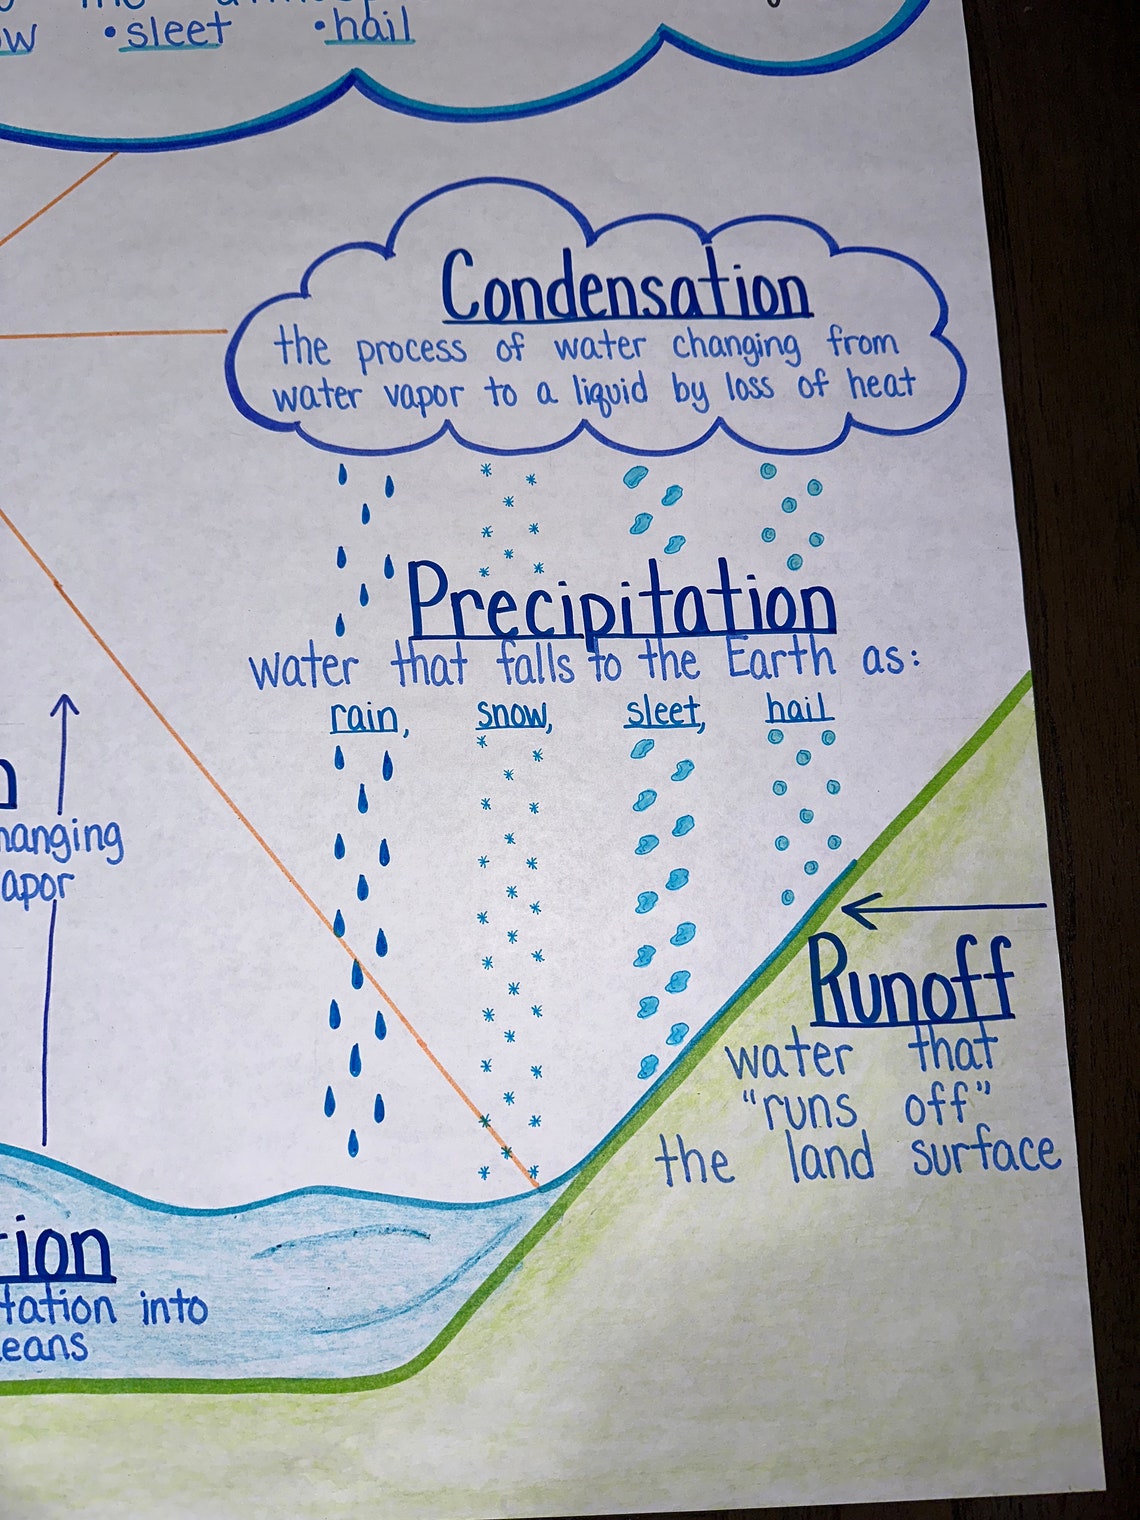 the
•sleet •hail
Condensation
the process of water changing from
water vapor to a liquid by loss of heat
Precipitation
water that falls to the Earth as:
rain, snow, sleet, hail
Runoff
water that
"runs off"
the land surface
into